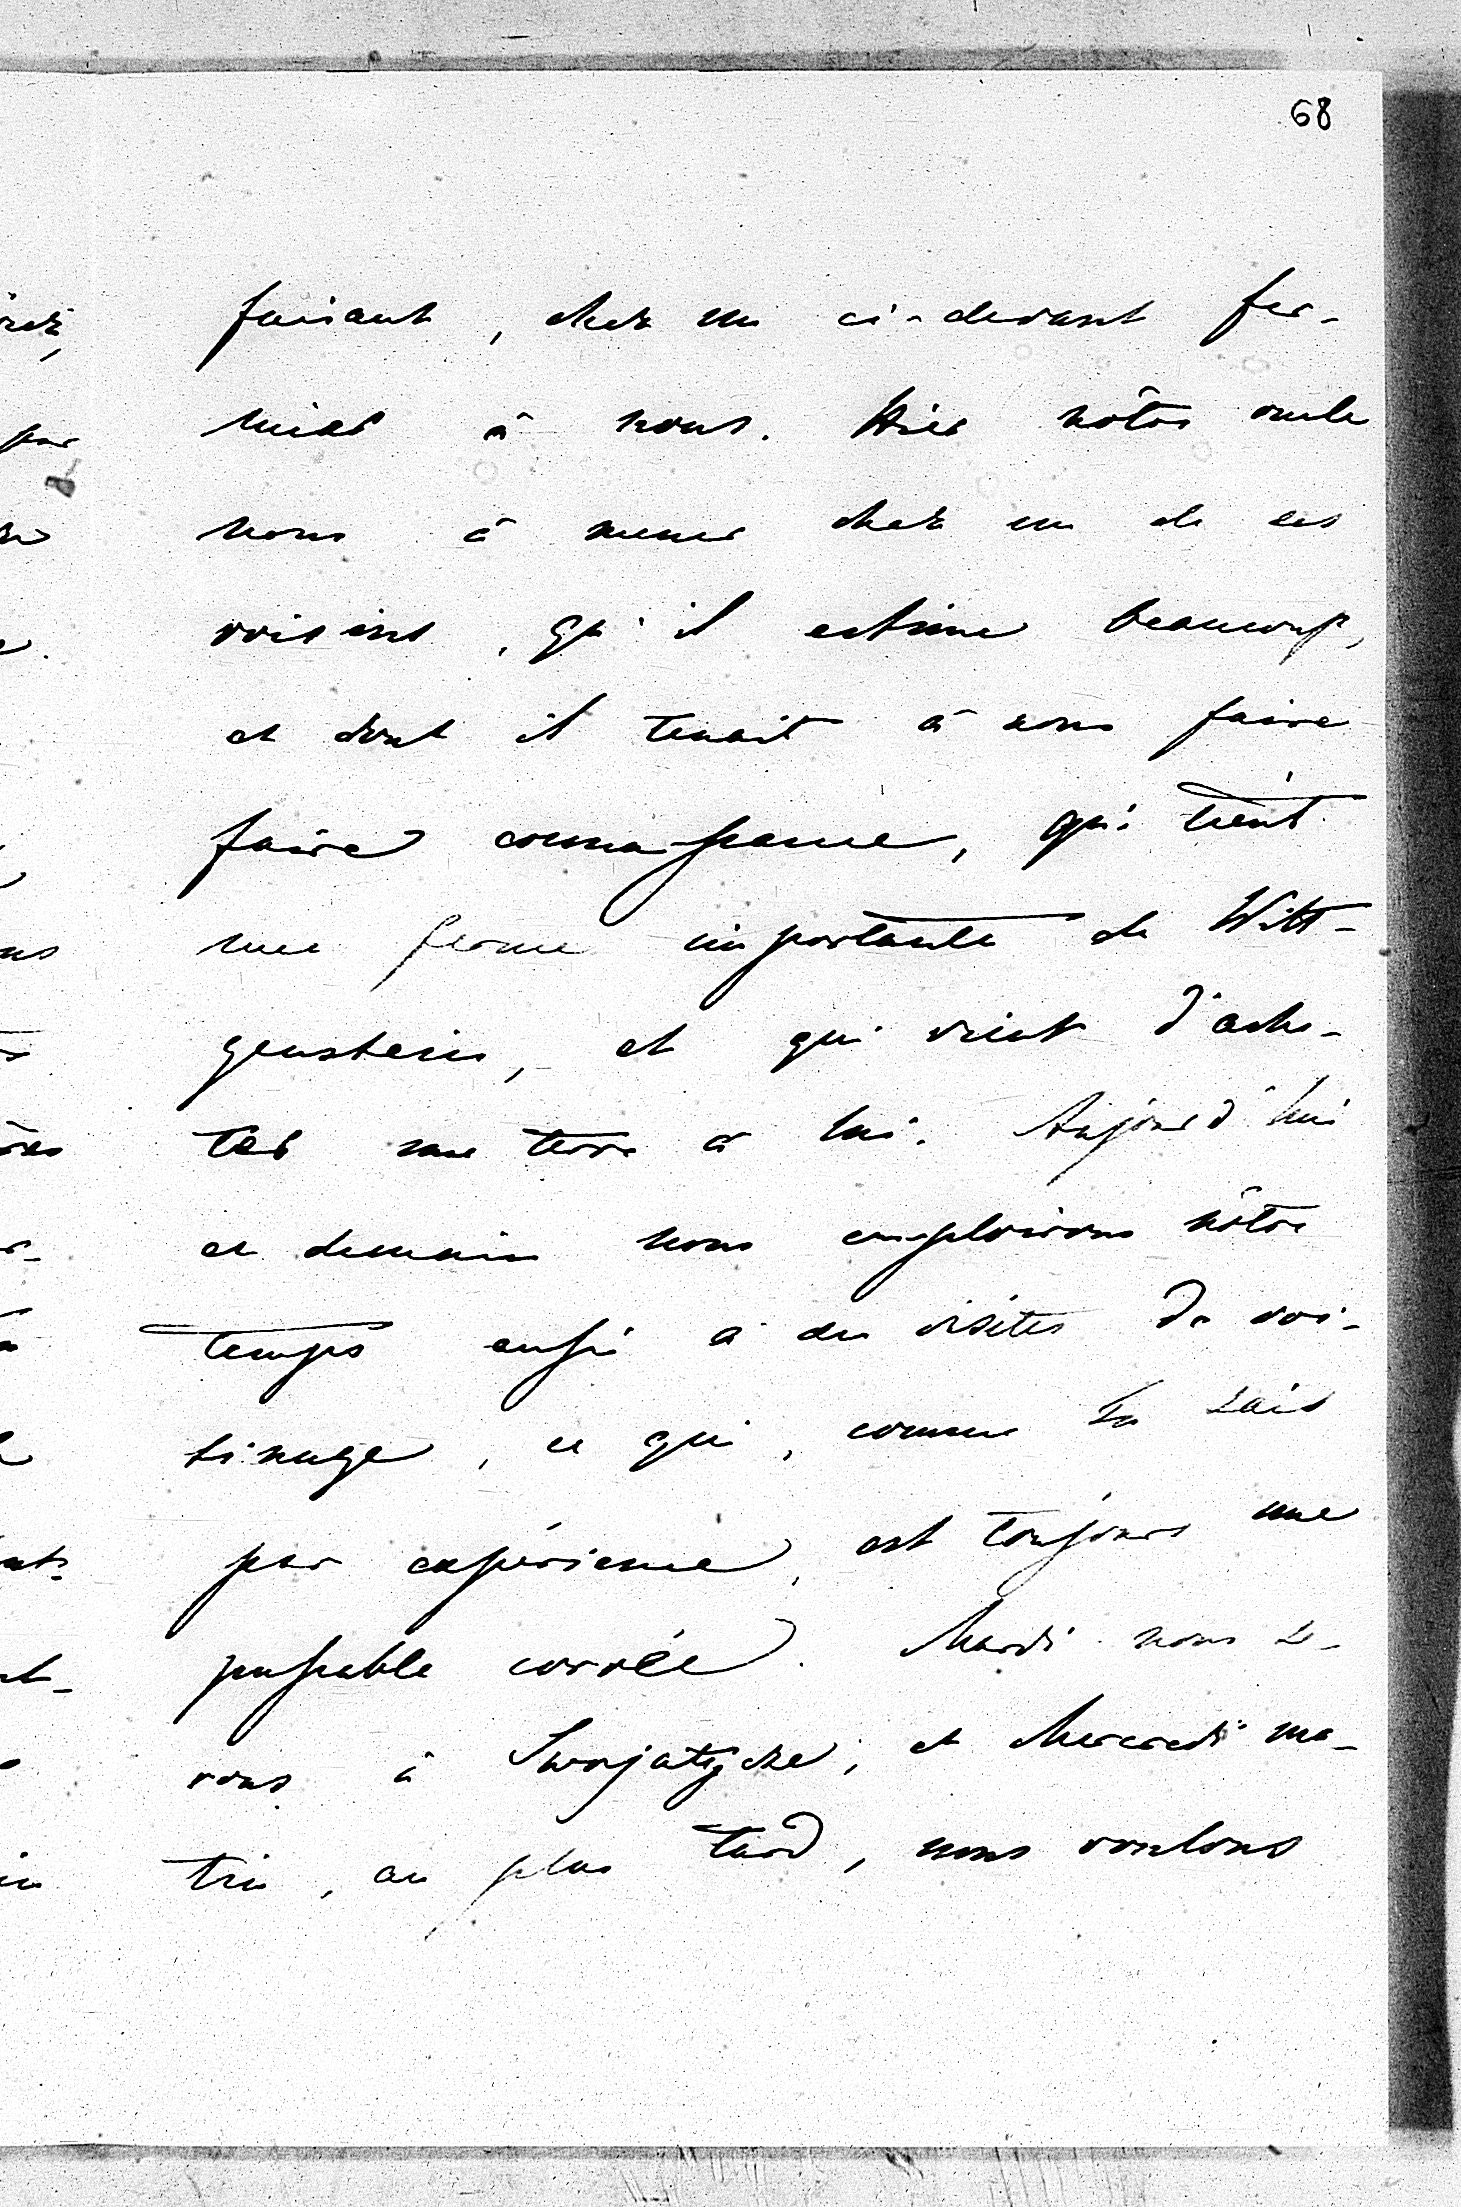 68
faisant, chez un ci-devant fer-
mier à nous. Hier nôtre oncle
nous à mener chez un de ses
voisins, qu'il estime beaucoup,
et dont il tenait à nous faire
faire connaissance, qui tient
une ferme importante de Witt-
genstein, et qui vient d'ache-
ter une terre à lui. Aujourd'hui
et demain nous emploirons nôtre
temps aussi à des visites de voi-
sinage, ce qui, comme tu sais
par expérience, est toujours une
passable corvée. Mardi nous se-
rons à Sworjatytche, et Mercredi ma-
tin, au plus tard, nous voulons